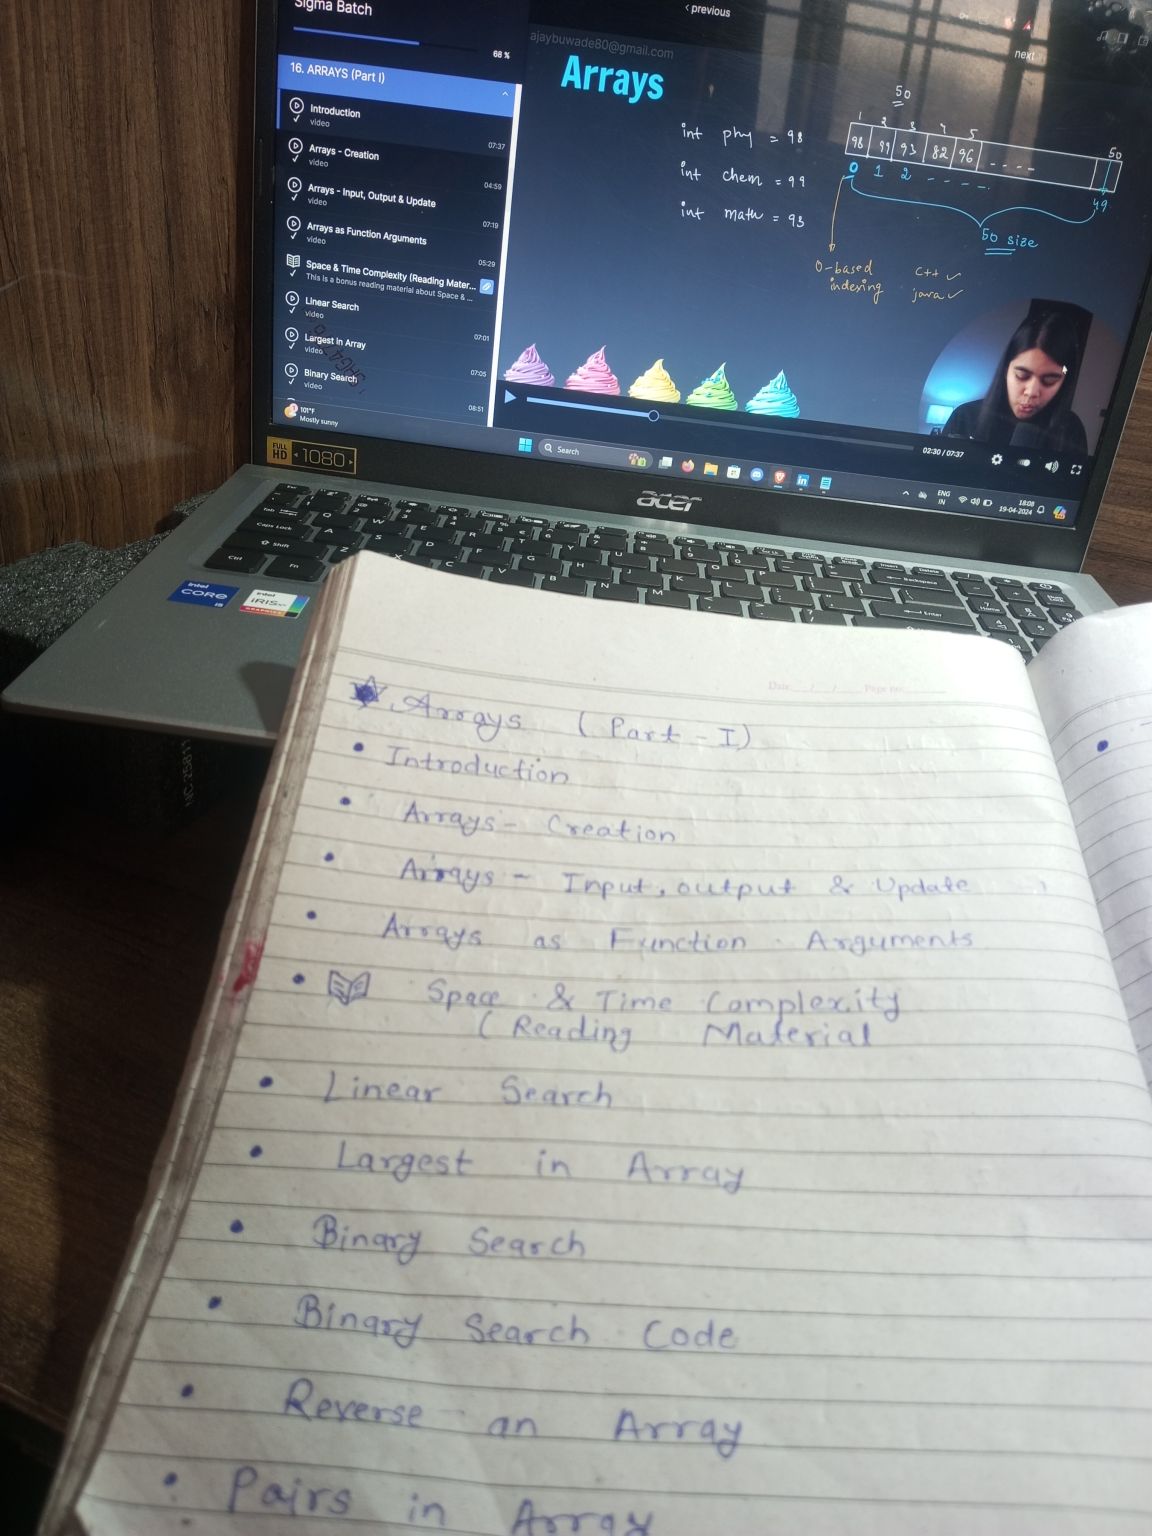 Sigma Batch
68 %
16. ARRAYS (Part I)
Introduction
video
07:37
Arrays - Creation
video
04:59
Arrays - Input, Output & Update
video
07:19
Arrays as Function Arguments
video
05:29
Space & Time Complexity (Reading Mater...
This is a bonus reading material about Space & ...
Linear Search
video
07:01
Largest in Array
video
07:05
Binary Search
video
08:51
101°F
Mostly sunny
‹ previous
next
ajaybuwade80@gmail.com
Arrays
int phy = 98
int chem = 99
int math = 93
50
1 2 3 4 5 50
98 99 93 82 96 - - - -
0 1 2 - - - - - 49
50 size
0-based
indexing
C++ ✓
java ✓
02:30 / 07:37
Search
ENG
IN
18:08
19-04-2024
FULL
HD
1080
acer
intel
CORE
i5
intel
IRIS xe
GRAPHICS
Date / / Page no.
Arrays (Part - I)
• Introduction
• Arrays - Creation
• Arrays - Input, output & Update
• Arrays as Function Arguments
• Space & Time Complexity
(Reading Material
• Linear Search
• Largest in Array
• Binary Search
• Binary Search Code
• Reverse an Array
• Pairs in Array